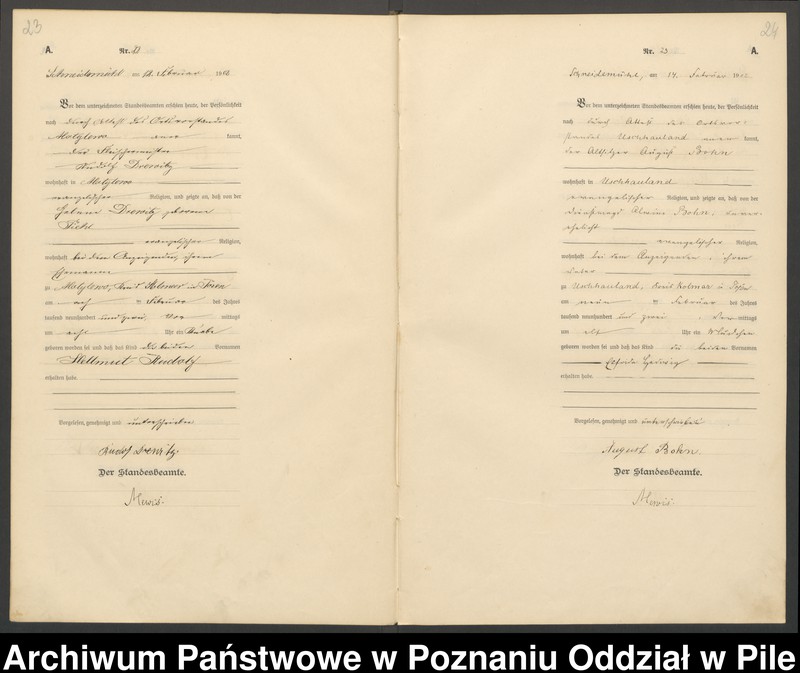 23
A.
Nr. 22
Schneidemühl am 12. Februar 1902
Vor dem unterzeichneten Standesbeamten erschien heute, der Persönlichkeit
nach durch Attest des Ortsvorstandes
kannt,
Rudolf Drewitz
wohnhaft in
evangelischer Religion, und zeigte an, daß von der
Drewitz geborene
evangelischer Religion,
wohnhaft bei dem Anzeigenden, ihrem
Ehemanne
zu
am acht ten Februar des Jahres
tausend neunhundert und zwei, Vor mittags
um acht Uhr ein Knabe
geboren worden sei und daß das Kind die beiden Vornamen
Hellmut Rudolf
erhalten habe.
Vorgelesen, genehmigt und unterschrieben
Rudolf Drewitz
Der Standesbeamte.
24
Nr. 23
A.
Schneidemühl, am 14. Februar 1902
Vor dem unterzeichneten Standesbeamten erschien heute, der Persönlichkeit
nach durch Attest des Ortsvor-
standes Uschhauland kannt,
der Altsitzer August Bohn
wohnhaft in Uschhauland
evangelischer Religion, und zeigte an, daß von der
Dienstmagd Alwine Bohn, unver-
ehelicht
evangelischer Religion,
wohnhaft bei dem Anzeigenden, ihrem
Vater
zu Uschhauland, Kreis Kolmar in Posen
am neun ten Februar des Jahres
tausend neunhundert und zwei, mittags
um elf Uhr ein Mädchen
geboren worden sei und daß das Kind die beiden Vornamen
Elfride Hedwig
erhalten habe.
Vorgelesen, genehmigt und unterschrieben
August Bohn.
Der Standesbeamte.
Archiwum Państwowe w Poznaniu Oddział w Pile